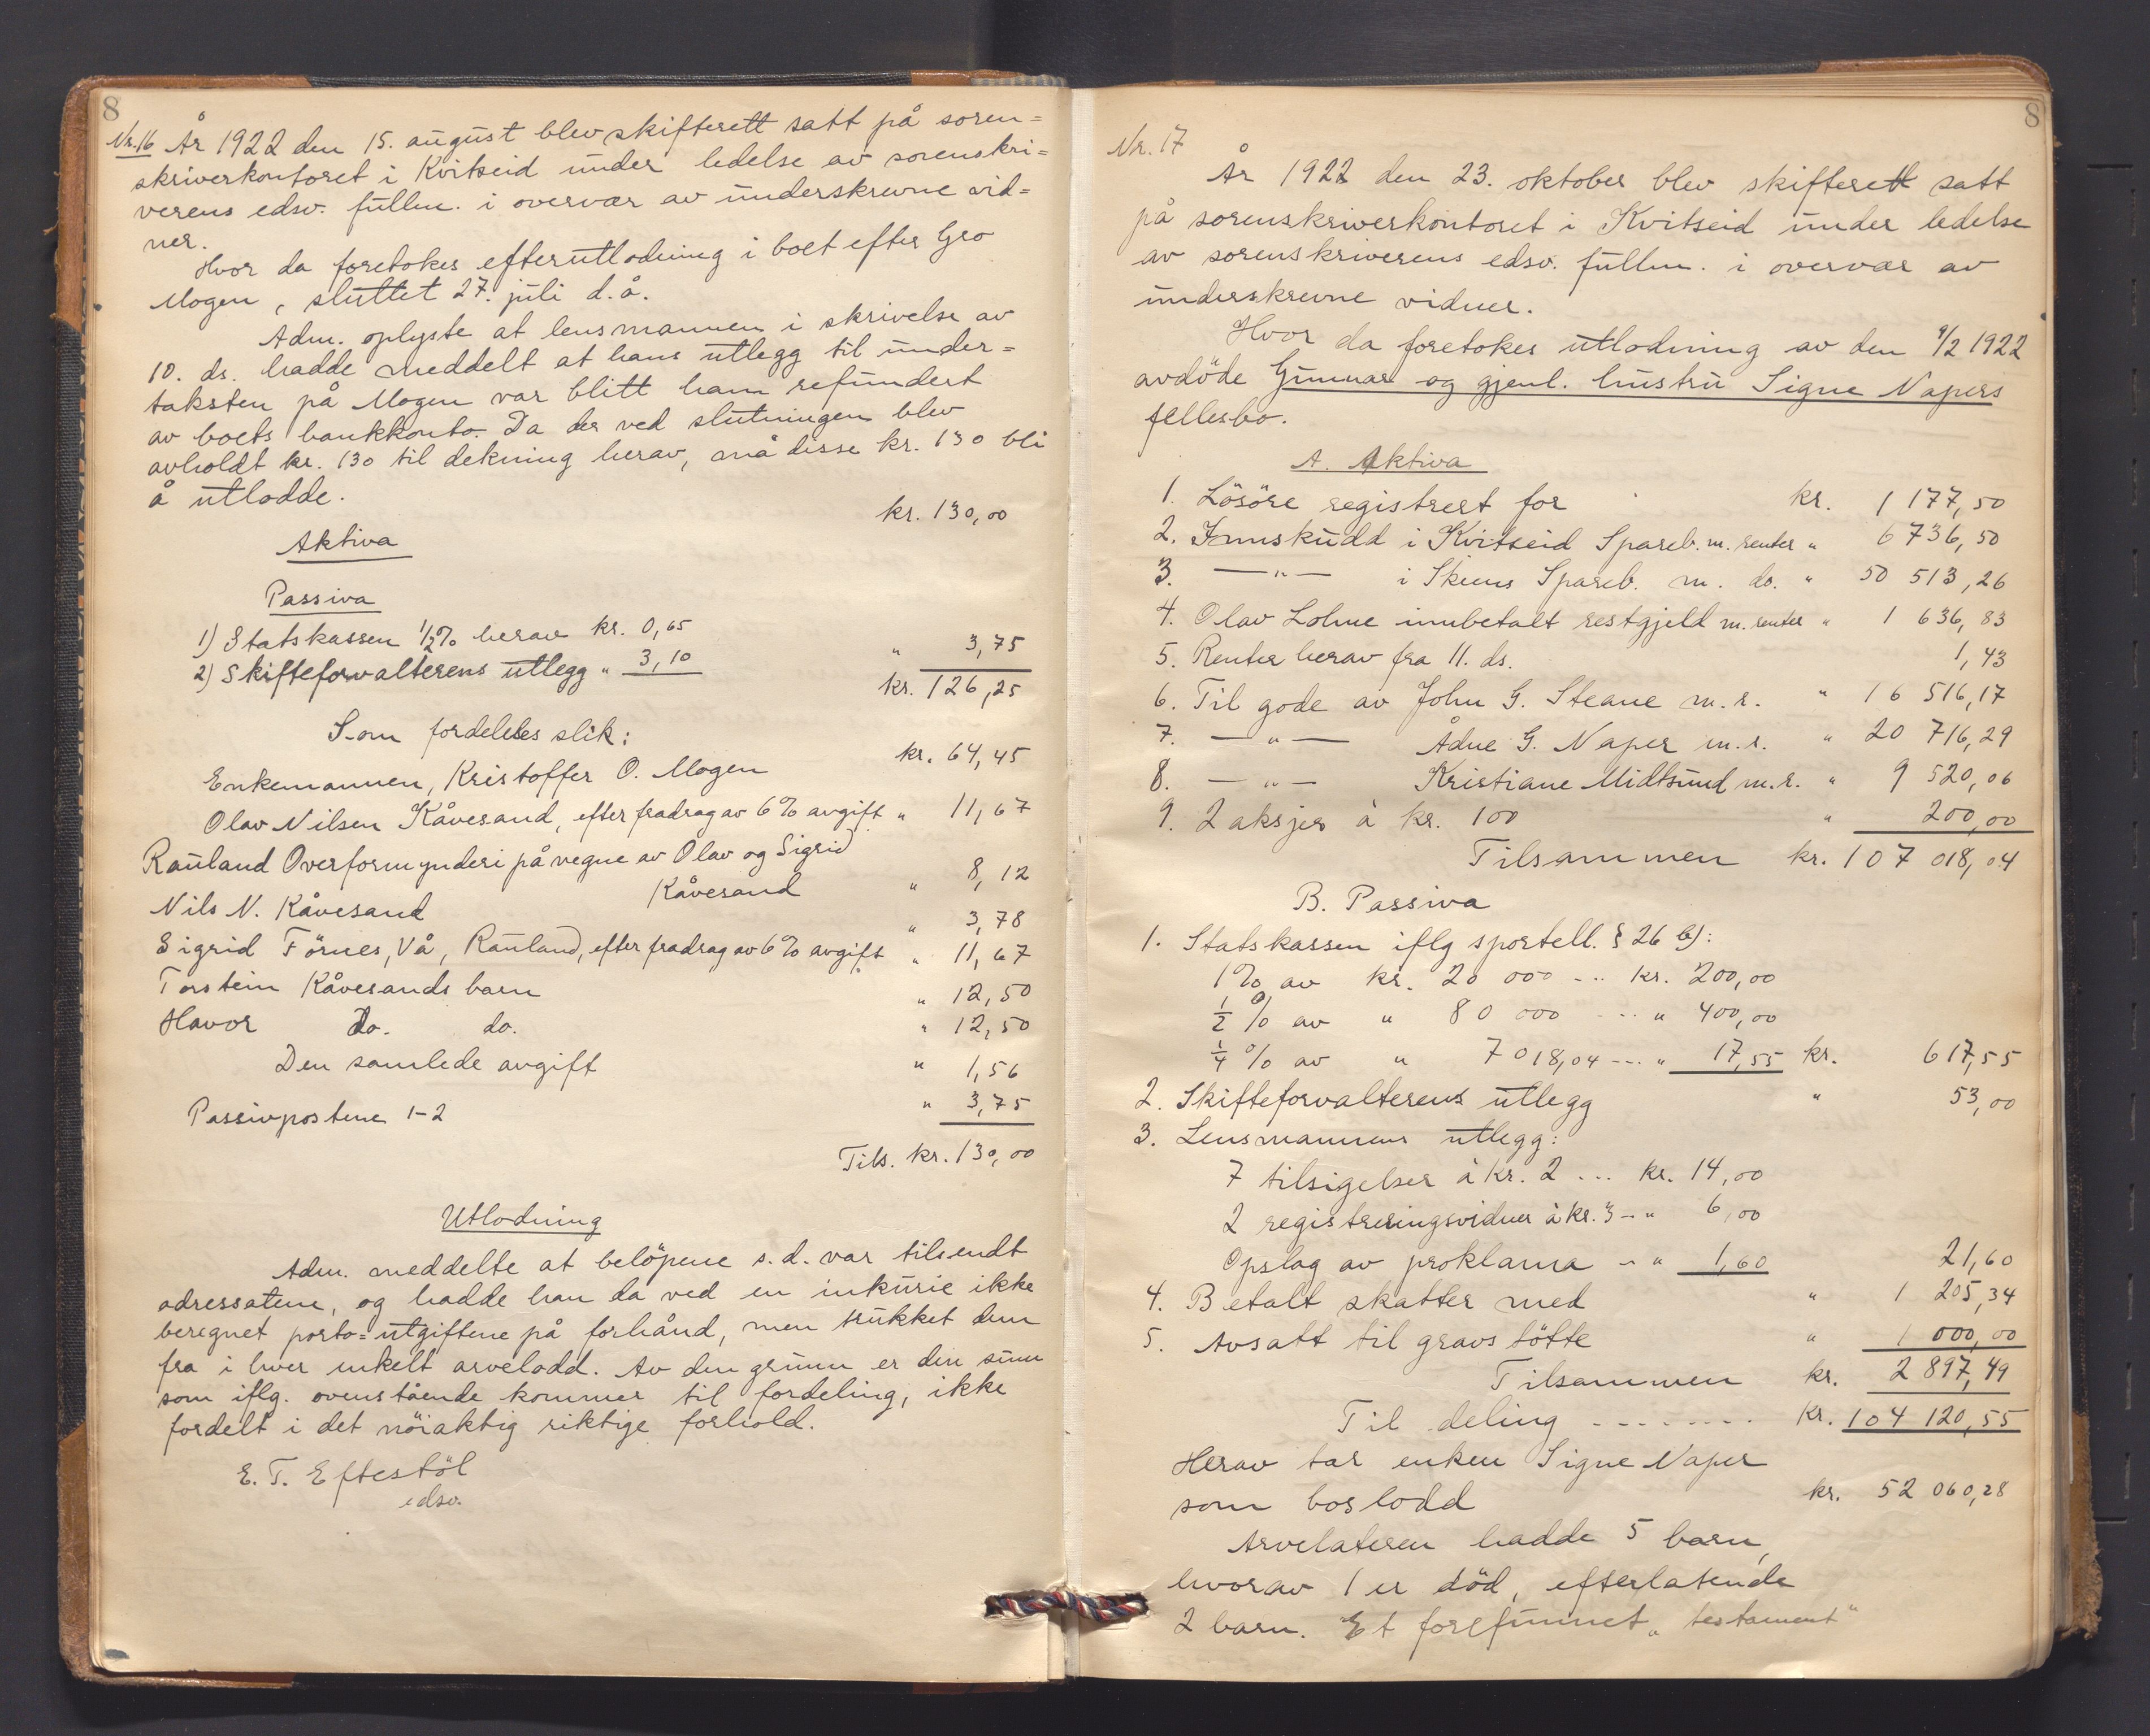 8
Nr. 16 År 1922 den 15. august blev skifterett satt på soren=
skriverkontoret i Kvitseid under ledelse av sorenskri=
verens edsv. fullm. i overvær av underskrevne vid=
ner.
Hvor da foretokes efterutlodning i boet efter Gro
Mogen, sluttet 27. juli d.å.
Adm. oplyste at lensmannen i skrivelse av
10. ds. hadde meddelt at hans utlegg til under=
taksten på Mogen var blitt ham refundert
av boets bankkonto. Da der ved slutningen blev
avholdt kr. 130 til dekning herav, må disse kr. 130 bli
å utlodde.
Aktiva kr. 130,00
Passiva
1) Statskassen 1/2% herav kr. 0,65
2) Skifteforvalterens utlegg " 3,10 " 3,75
kr. 126,25
Som fordeles slik:
Enkemannen, Kristoffer O. Mogen kr. 64,45
Olav Nilsen Kåvesand, efter fradrag av 6% avgift " 11,67
Rauland Overformynderi på vegne av Olav og Sigrid
Kåvesand " 8,12
Nils N. Kåvesand " 3,78
Sigrid Förnes, Vå, Rauland, efter fradrag av 6% avgift " 11,67
Torstein Kåvesands barn " 12,50
Havor do. do. " 12,50
Den samlede avgift " 1,56
Passivpostene 1-2 " 3,75
Tils. kr. 130,00
Utlodning
Adm. meddelte at belöpene s.d. var tilsendt
adressatene, og hadde han da ved en inkurie ikke
beregnet porto=utgiftene på forhånd, men trukket dem
fra i hver enkelt arvelodd. Av den grunn er den sum
som iflg. ovenstående kommer til fordeling, ikke
fordelt i det nöiaktig riktige forhold.
E. T. Eftestöl
edsv.
8
Nr. 17
År 1922 den 23. oktober blev skifterett satt
på sorenskriverkontoret i Kvitseid under ledelse
av sorenskriverens edsv. fullm. i overvær av
underskrevne vidner.
Hvor da foretokes utlodning av den 9/2 1922
avdöde Gunnar og gjenl. hustru Signe Napers
fellesbo.
A. Aktiva
1. Lösöre registrert for kr. 1 177,50
2. Innskudd i Kvitseid Spareb. m. renter " 6 736,50
3. —"— i Skiens Spareb. m. do. " 50 513,26
4. Olav Lohne innbetalt restgjeld m. renter " 1 636,83
5. Renter herav fra 11. ds. 1,43
6. Til gode av John G. Steane m. r. " 16 516,17
7. —"— Ådne G. Naper m. r. " 20 716,29
8. —"— Kristiane Midtsund m. r. " 9 520,06
9. 2 aksjer à kr. 100 " 200,00
Tilsammen kr. 107 018,04
B. Passiva
1. Statskassen iflg sportell. § 26 b):
1% av kr. 20 000 --- kr. 200,00
1/2 % av " 80 000 --- " 400,00
1/4 % av " 7 018,04 --- " 17,55 kr. 617,55
2. Skifteforvalterens utlegg " 53,00
3. Lensmannens utlegg:
7 tilsigelser à kr. 2 ... kr. 14,00
2 registreringsvidner à kr. 3 -- " 6,00
Opslag av proklama -- " 1,60 21,60
4. Betalt skatter med " 1 205,34
5. Avsatt til gravstötte " 1 000,00
Tilsammen kr. 2 897,49
Til deling ------- kr. 104 120,55
Herav tar enken Signe Naper
som boslodd kr. 52 060,28
Arvelateren hadde 5 barn,
hvorav 1 er död, efterlatende
2 barn. Et forefunnet "testament"